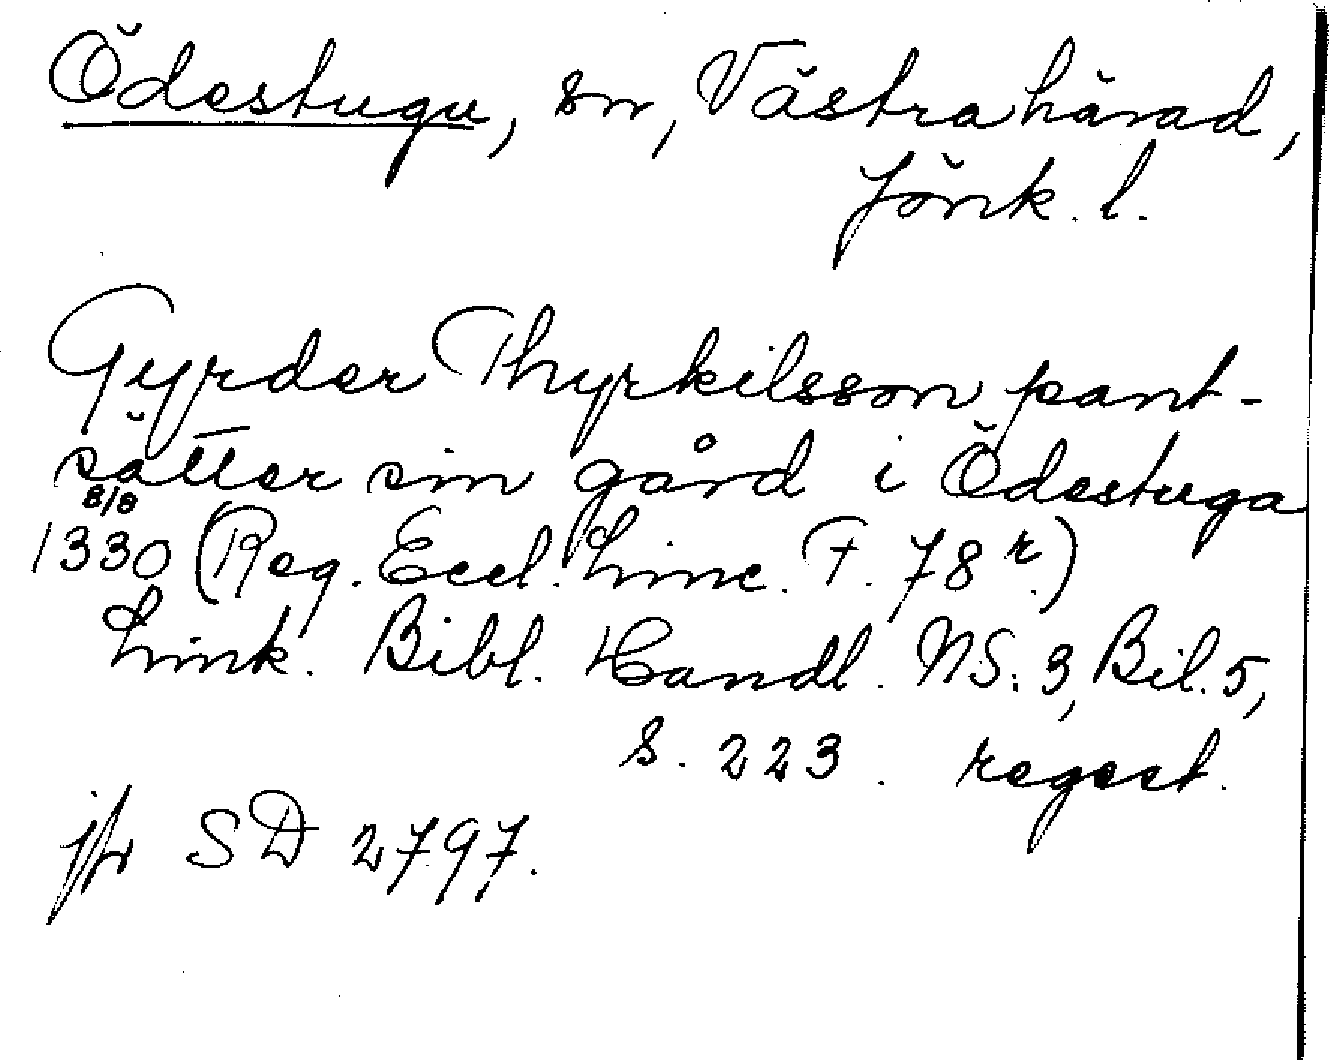 Ödestugu, sn, Västra härad,
Jönk. l.
Gyrder Thyrkilsson pant-
sätter sin gård i Ödestuga
8/8
1330 (Reg. Eccl. Linc. F. 78 r.)
Link. Bibl. Handl. NS. 3, Bil. 5,
s. 223. regest.
jfr SD 2797.